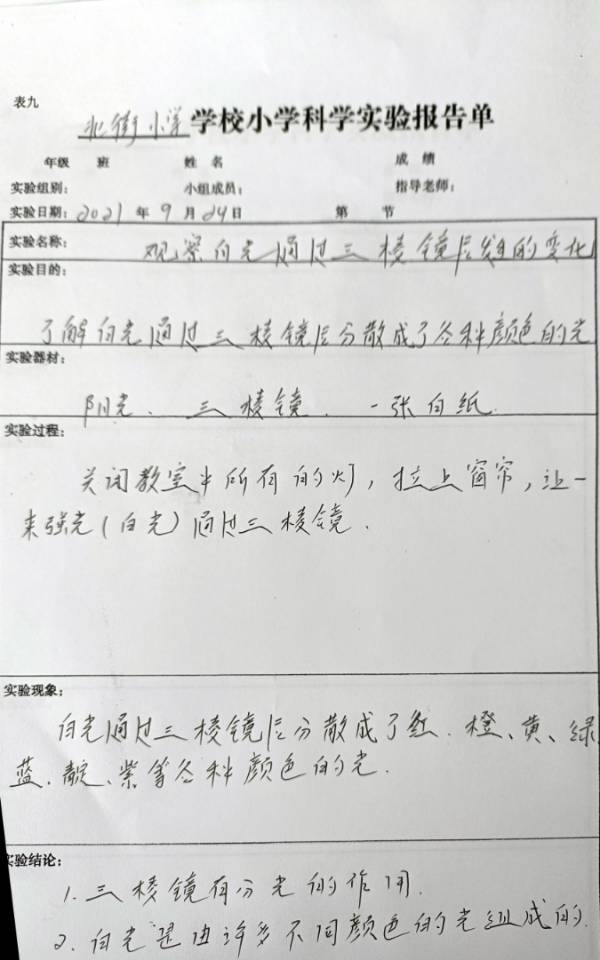 表九
北街小学学校小学科学实验报告单
年级 班 姓名 成绩
实验组别： 小组成员： 指导老师：
实验日期：2021年9月24日 第 节
实验名称： 观察白光通过三棱镜后发生的变化
实验目的：
了解白光通过三棱镜后分散成了各种颜色的光
实验器材：
阳光、三棱镜、一张白纸
实验过程：
关闭教室中所有的灯，拉上窗帘，让一
束强光（白光）通过三棱镜.
实验现象：
白光通过三棱镜后分散成了红、橙、黄、绿
蓝、靛、紫等各种颜色的光.
实验结论：
1.三棱镜有分光的作用.
2.白光是由许多不同颜色的光组成的.